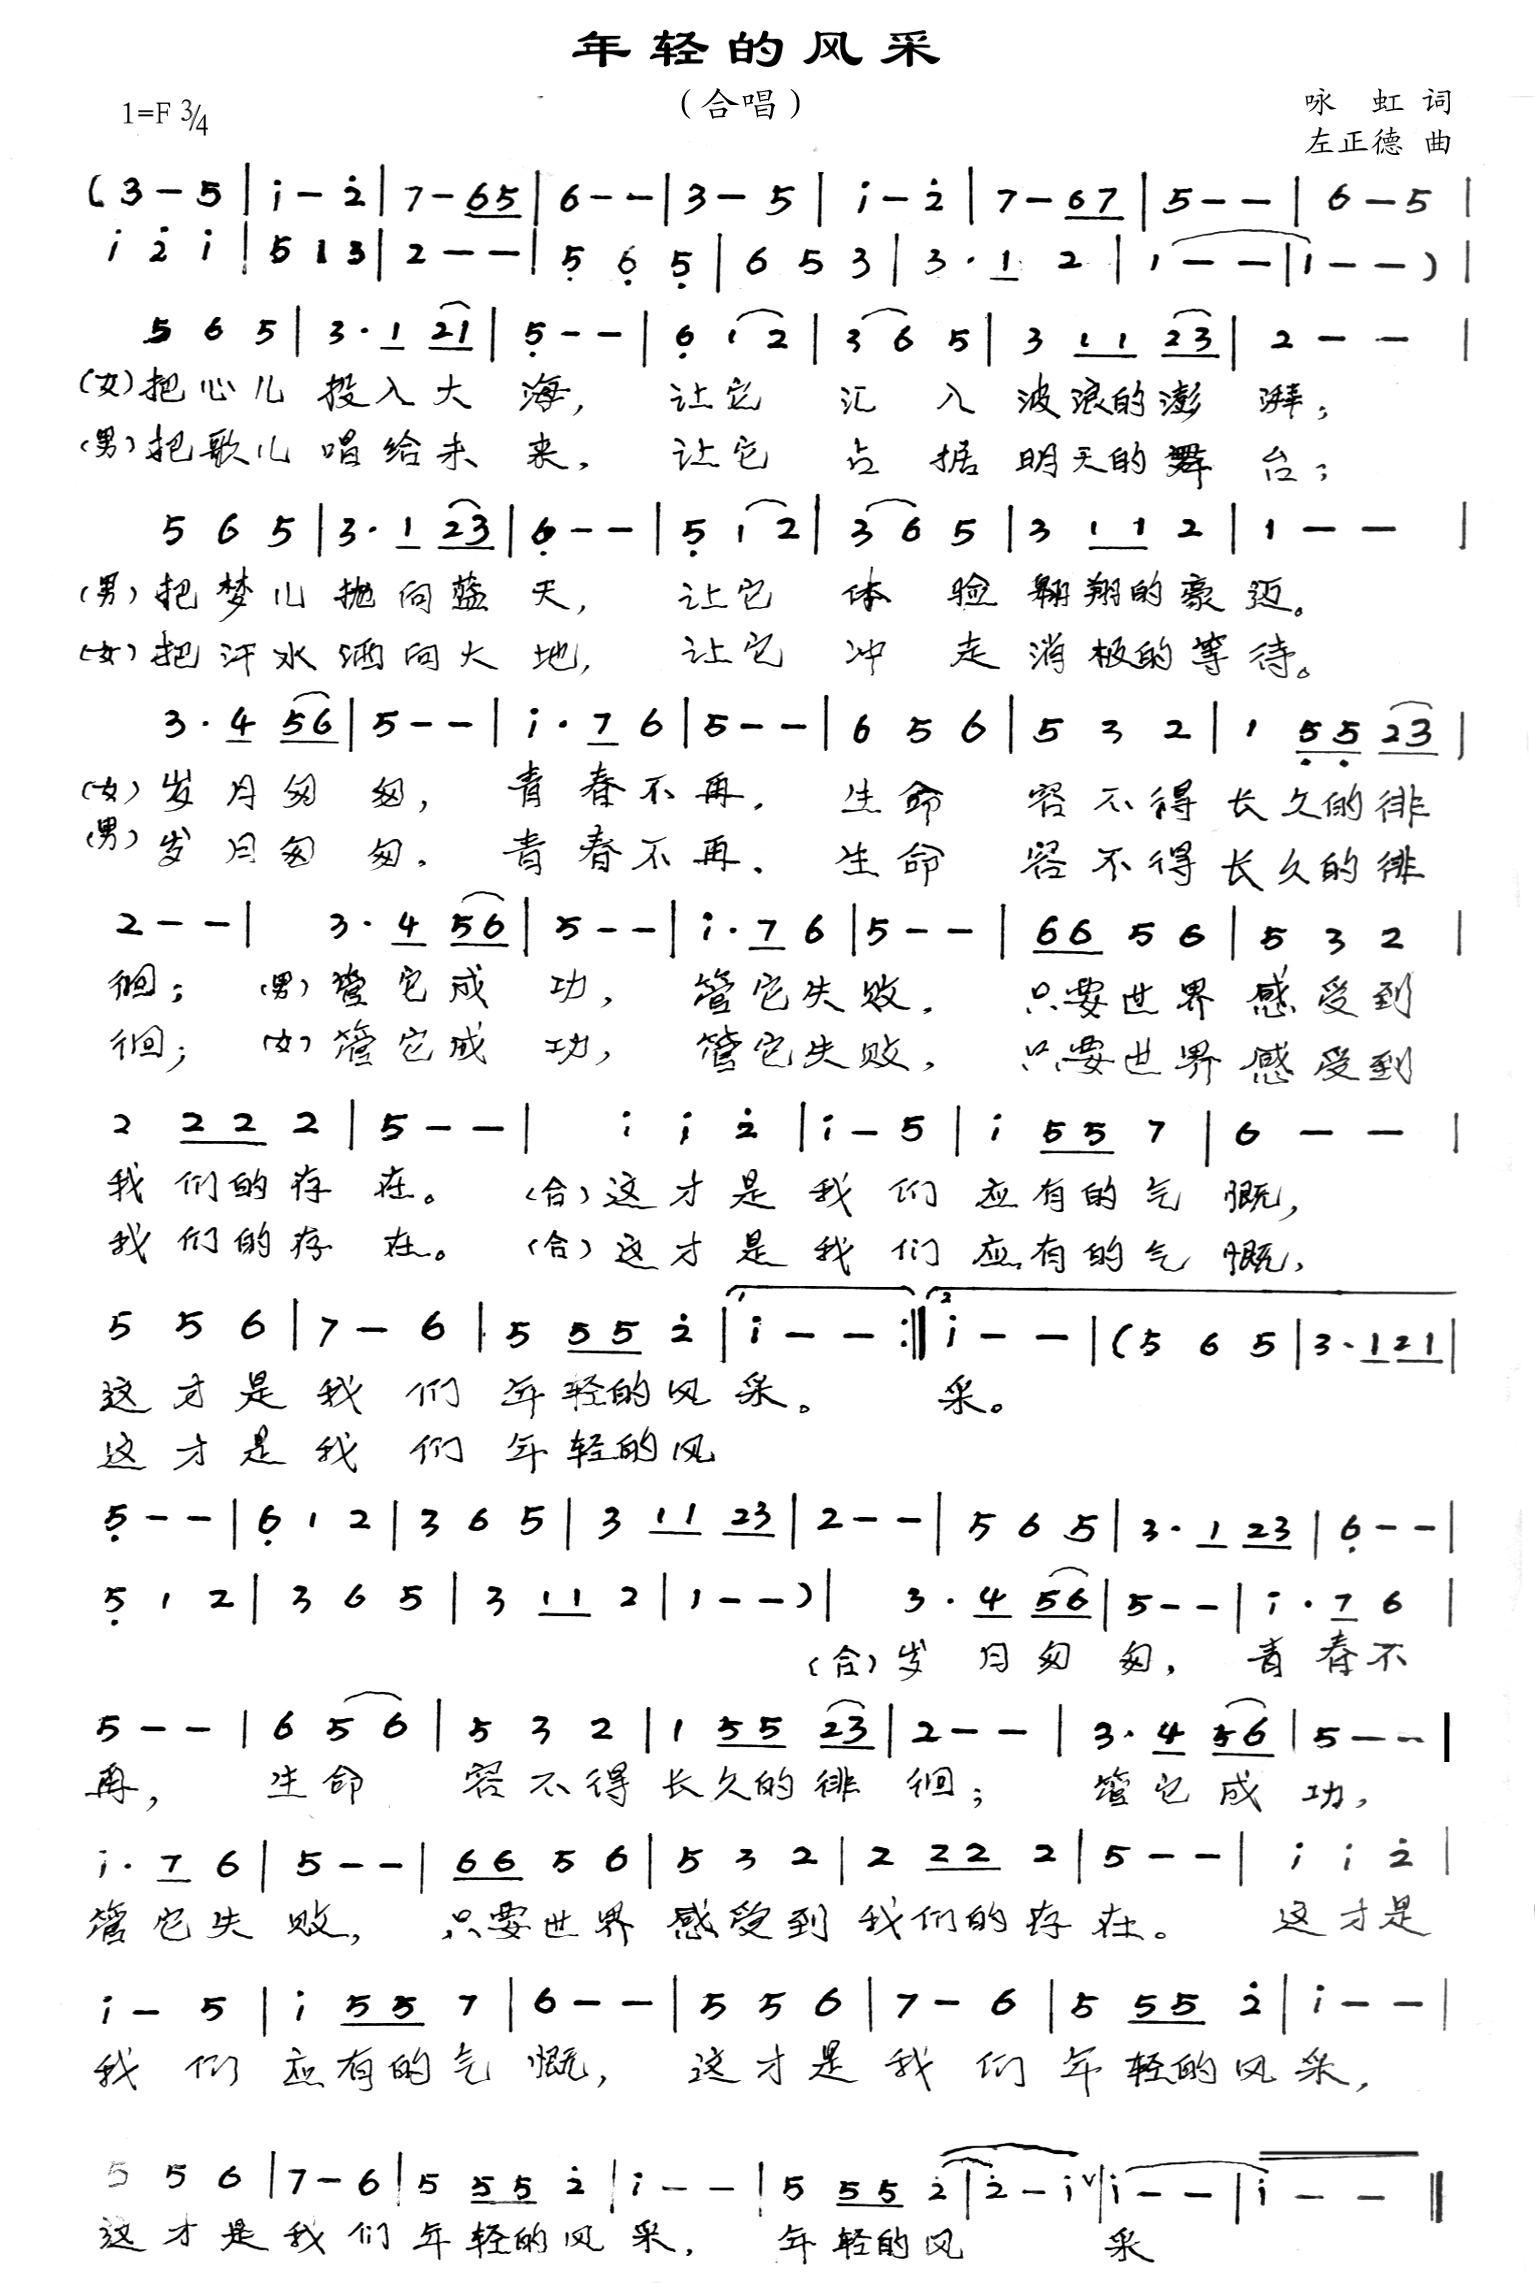 年轻的风采
(合唱)
1=F 3/4
咏 虹 词
左正德 曲
(3 – 5 | i – 2̇ | 7 – 6 5 | 6 – – | 3 – 5 | i – 2̇ | 7 – 6 7 | 5 – – | 6 – 5 |
i 2̇ i | 5 1 3 | 2 – – | 5̣ 6̣ 5̣ | 6 5 3 | 3 · 1 2 | 1 – – | 1 – – ) |
5 6 5 | 3 · 1 2 1 | 5̣ – – | 6̣ 1 2 | 3 6 5 | 3 1 1 2 3 | 2 – – |
(女)把心儿 投入大 海, 让它 汇 入 波浪的澎 湃;
(男)把歌儿 唱给未 来, 让它 占 据 明天的舞 台;
5 6 5 | 3 · 1 2 3 | 6̣ – – | 5̣ 1 2 | 3 6 5 | 3 1 1 2 | 1 – – |
(男)把梦儿 抛向蓝 天, 让它 体 验 翱翔的豪 迈。
(女)把汗水 洒向大 地, 让它 冲 走 消极的等 待。
3 · 4 5 6 | 5 – – | i · 7 6 | 5 – – | 6 5 6 | 5 3 2 | 1 5̣ 5̣ 2 3 |
(女)岁月匆 匆, 青春不再, 生命 容不得长久的徘
(男)岁月匆 匆, 青春不再, 生命 容不得长久的徘
2 – – | 3 · 4 5 6 | 5 – – | i · 7 6 | 5 – – | 6 6 5 6 | 5 3 2 |
徊; (男)管它成 功, 管它失败, 只要世界 感受到
徊; (女)管它成 功, 管它失败, 只要世界 感受到
2 2 2 2 | 5 – – | i i 2̇ | i – 5 | i 5 5 7 | 6 – – |
我 们的存 在。 (合)这才是 我 们 应有的气 慨,
我 们的存 在。 (合)这才是 我 们 应有的气 慨,
5 5 6 | 7 – 6 | 5 5 5 2̇ | 1 i – – :‖ 2 i – – | (5 6 5 | 3 · 1 2 1 |
这才是 我 们 年轻的风 采。 采。
这才是 我 们 年轻的风
5̣ – – | 6̣ 1 2 | 3 6 5 | 3 1 1 2 3 | 2 – – | 5 6 5 | 3 · 1 2 3 | 6̣ – – |
5̣ 1 2 | 3 6 5 | 3 1 1 2 | 1 – – ) | 3 · 4 5 6 | 5 – – | i · 7 6 |
(合)岁 月匆 匆, 青春不
5 – – | 6 5 6 | 5 3 2 | 1 5 5 2 3 | 2 – – | 3 · 4 5 6 | 5 – – |
再, 生命 容不得 长久的徘 徊; 管它成 功,
i · 7 6 | 5 – – | 6 6 5 6 | 5 3 2 | 2 2 2 2 | 5 – – | i i 2̇ |
管它失 败, 只要世界 感受到 我们的存 在。 这才是
i – 5 | i 5 5 7 | 6 – – | 5 5 6 | 7 – 6 | 5 5 5 2̇ | i – – |
我 们 应有的气 慨, 这才是 我 们 年轻的风 采,
5 5 6 | 7 – 6 | 5 5 5 2̇ | i – – | 5 5 5 2̇ | 2̇ – i ∨ | i – – | i – – ‖
这才是 我们 年轻的风 采, 年轻的风 采